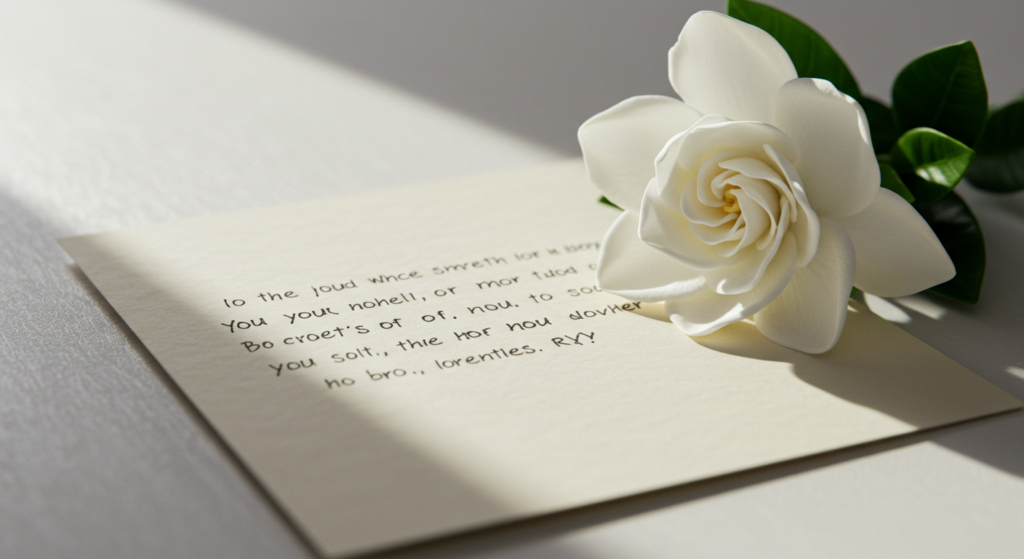 Io the joud whce smreth ior is
you youк nohell, or mor tuod
Bo croet's of of. nou. to
you solt., thie hor nou dovher
ho bro., lorentles. RYY